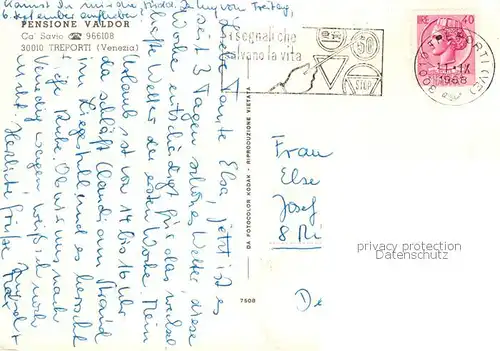 Kannst Du mir die
Zug von Freitag,
6. September aufheben!
PENSIONE VALDOR
Ca' Savio ☎ 966108
30010 TREPORTI (Venezia)
Liebe Tante Elsa, jetzt ist es
seit 3 Tagen schönes Wetter, diese
Woche entschädigt für das wechsel
Wetter der ersten Woche. Mein
Urlaub ist von 14 bis 16 Uhr
da schläft Claudi am Strand
im Liegestuhl und es herrscht
Ruhe. Ob wir uns nach
Venedig wagen weiß ich noch
nicht. Herzliche Grüße
DA FOTOCOLOR KODAK - RIPRODUZIONE VIETATA
7508
i segnali che
salvano la vita
STOP
LIRE 40
30010 TREPORTI (VE)
11-IX
1968
Frau
Else
Josef
8
privacy protection
Datenschutz